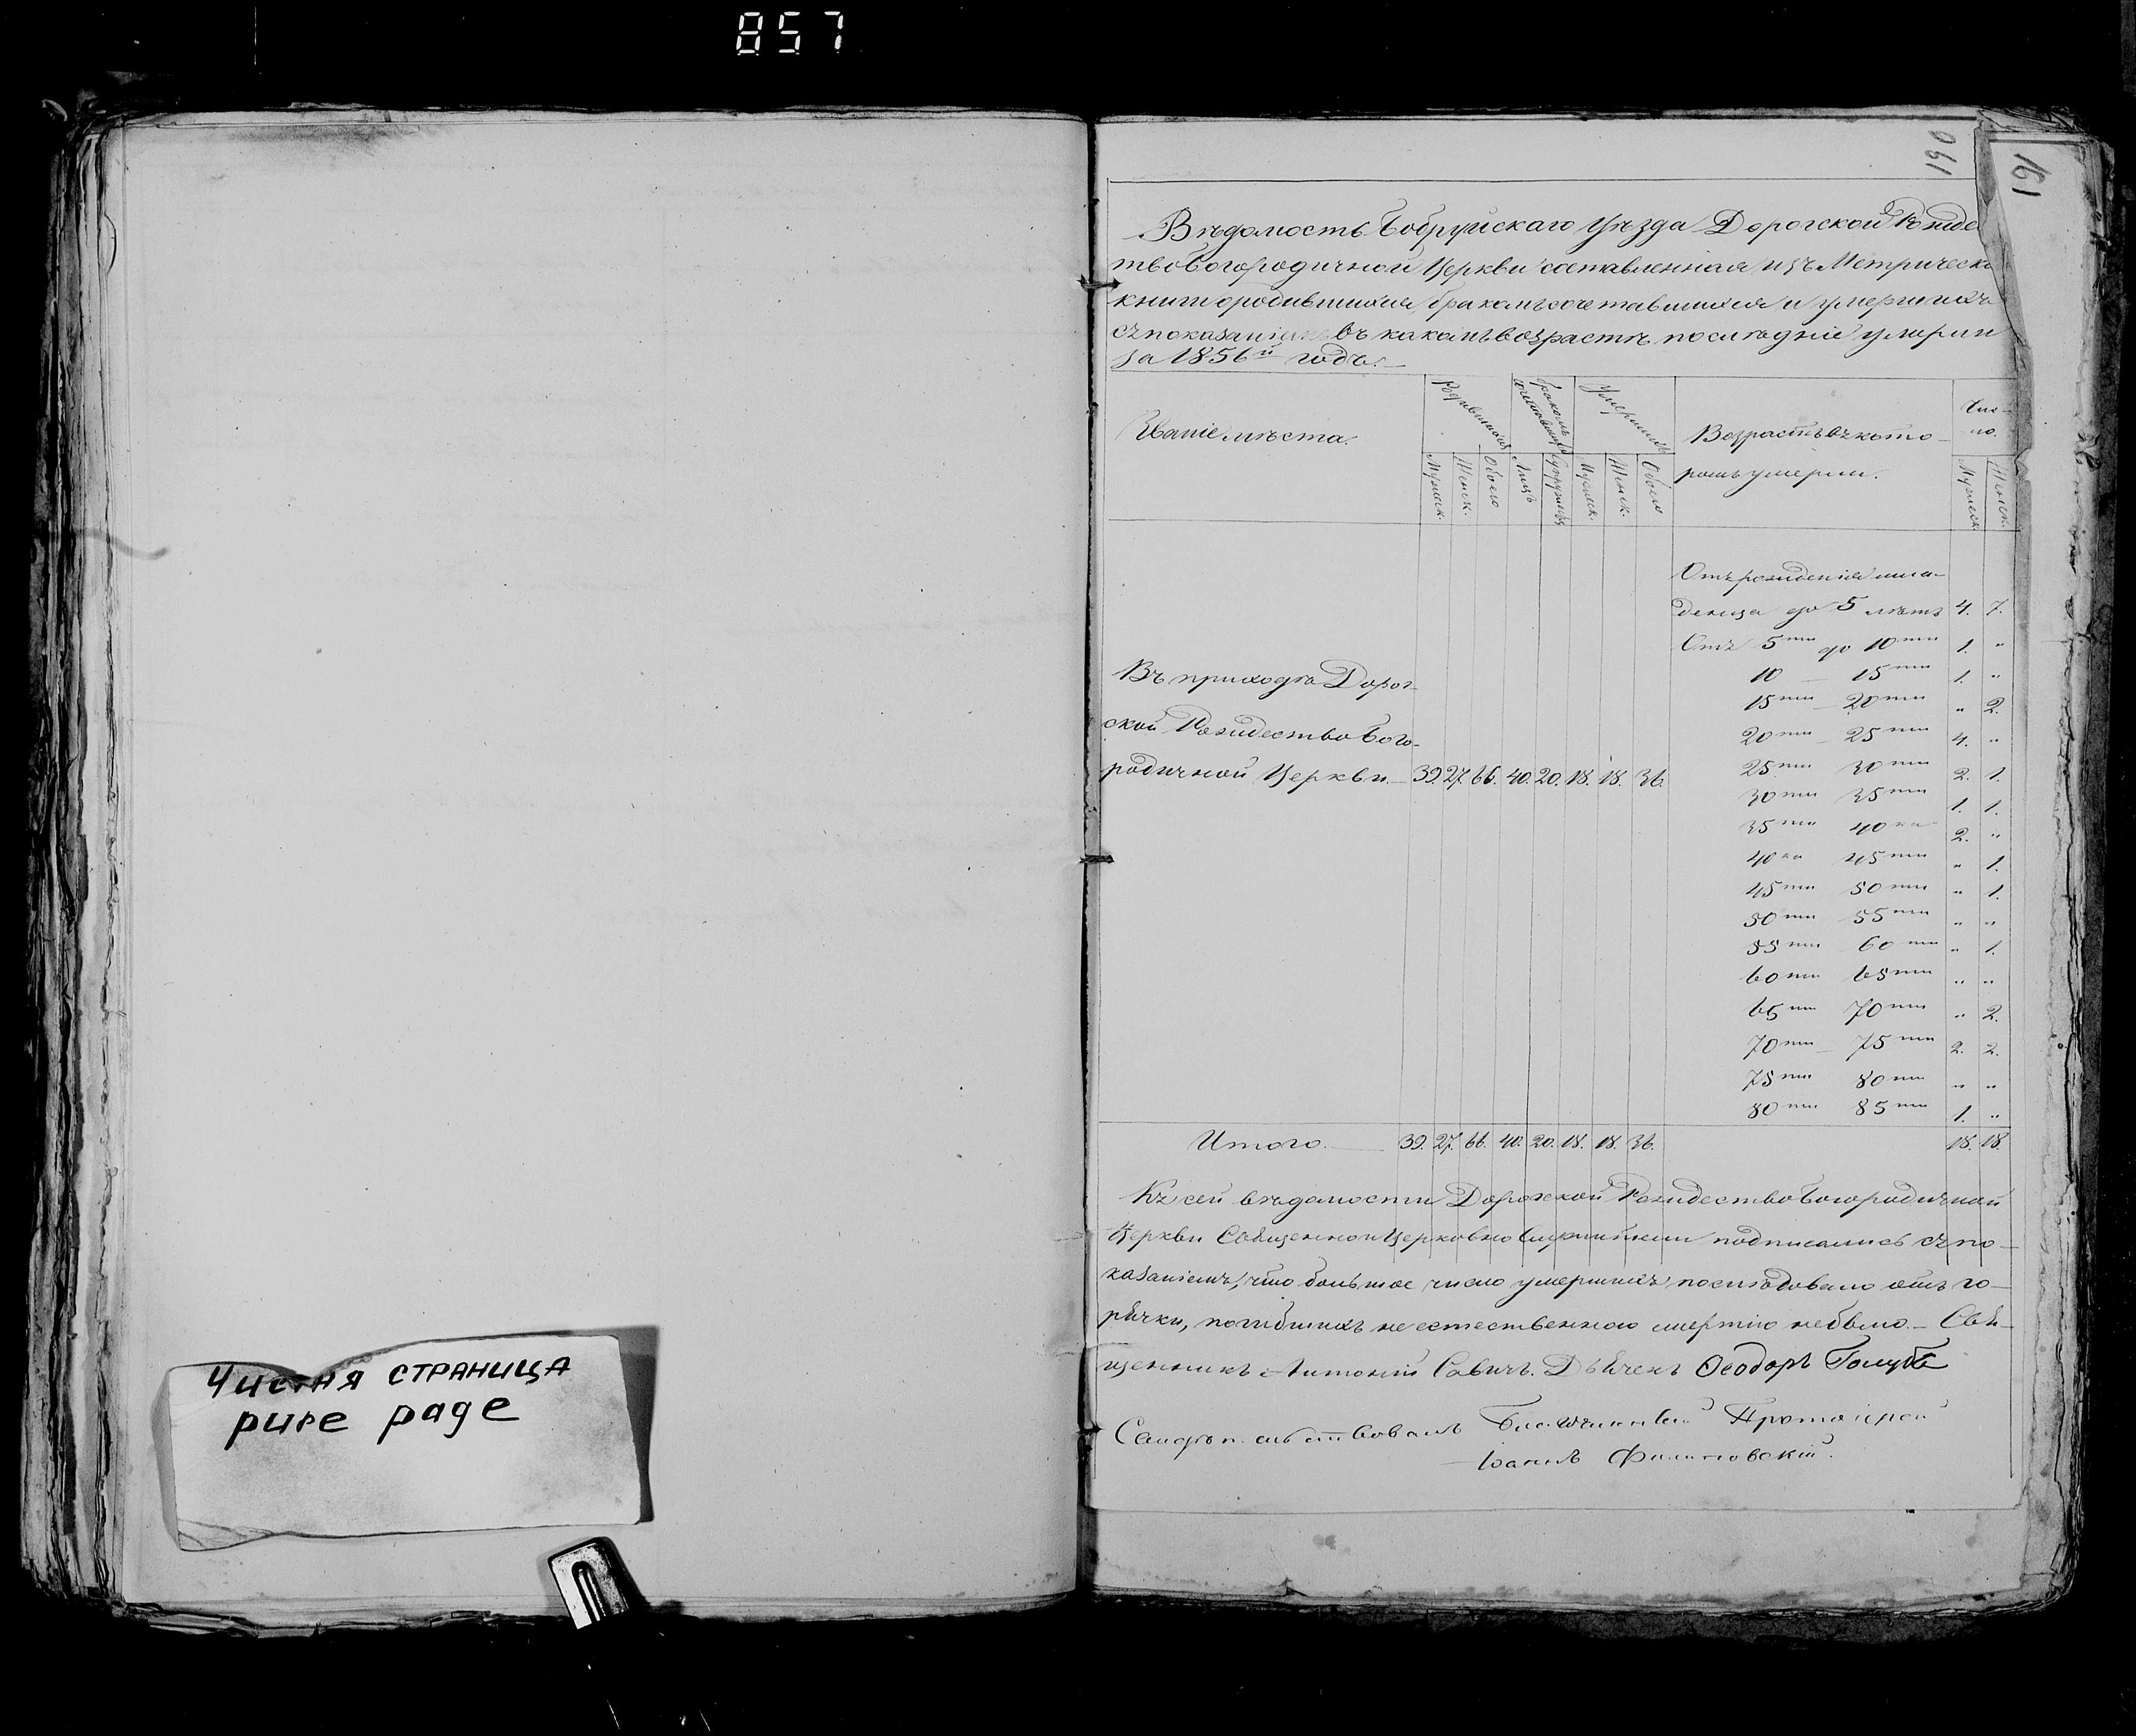 857
160
161
Вѣдомость Бобруйскаго Уѣзда Дорогской Рожде
твобогородичной Церкви составленная изъ Метрическ
книги о родившихся, бракомъ сочетавшихся и умершихъ
съ показаніемъ въ какомъ возрастѣ последніе умерли
за 1856й годъ.
Званіе мѣста.
Родившихся
Бракомъ сочетавшихся
Умершихъ
Возрастъ въ кото-
ромъ умерли.
Чис-
ло.
Мужеск. Женск. Обоего Лицъ Супружествъ Мужеск. Женск. Обоего Мужеск. Женск.
Отъ рожденія мла-
денца до 5 лѣтъ 4. 7.
Отъ 5ти до 10ти 1. "
10 — 15ти 1. "
15ти — 20ти " 2.
20ти — 25ти 4. "
25ти 30ти 2. 1.
30ти 35ти 1. 1.
35ти 40ка 2. "
40ка 45ти " 1.
45ти 50ти " 1.
50ти 55ти " "
55ти 60ти " 1.
60ти 65ти " "
65ти 70ти " 2.
70ти — 75ти 2. 2.
75ти 80ти " "
80ти 85ти 1. "
Въ приходѣ Дорог-
ской Рождество Бого-
родичной Церкви — 39. 27. 66. 40. 20. 18. 18. 36.
Итого. — 39. 27. 66. 40. 20. 18. 18. 36. 18. 18.
Къ сей вѣдомости Дорогской Рождество Богородичной
Церкви Священно и Церковно Служители подписались съ по-
казаніемъ, что большое число умершихъ последовало отъ го-
рячки, погибшихъ не естественною смертію небыло. — Свя-
щенникъ Антоній Савичъ. Дьячекъ Ѳеодоръ Голубъ
Свидѣтельствовалъ Благочинный Протоіерей
Іоаннъ Филиповскій.
Чистая страница
pure page